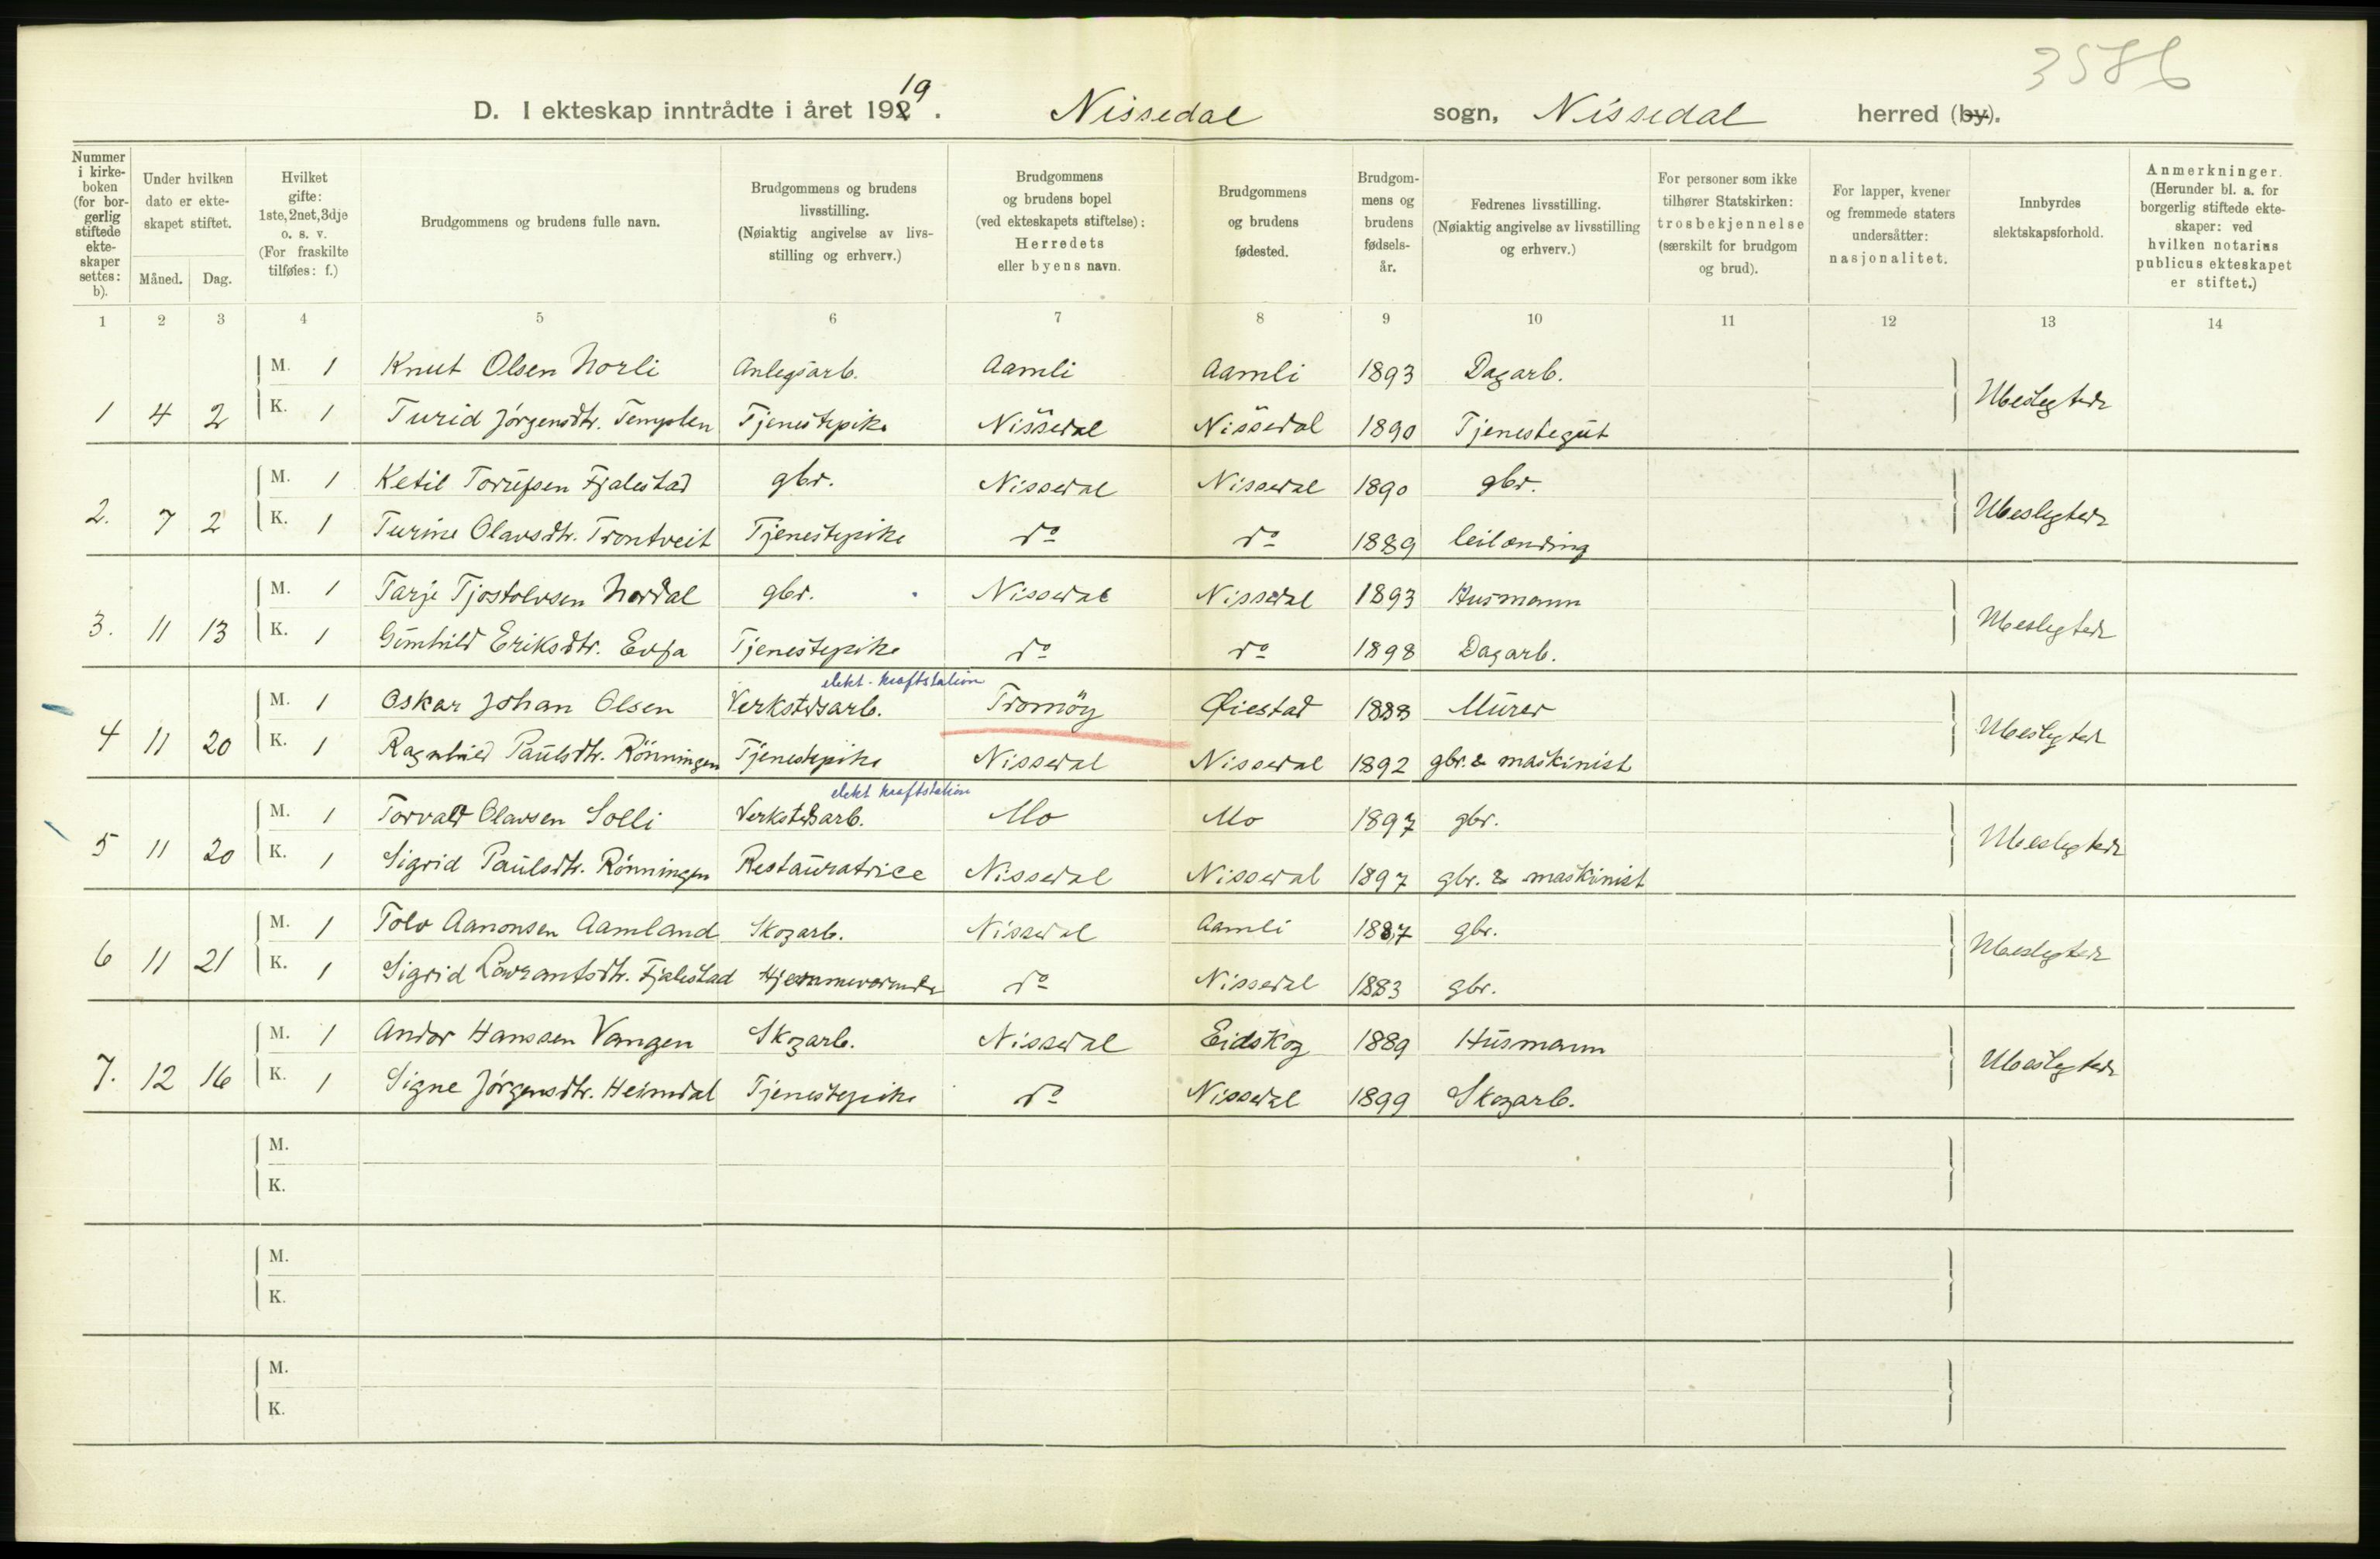 3586
D. I ekteskap inntrådte i året 1919. Nissedal sogn, Nissedal herred (by).
Nummer i kirkeboken (for borgerlig stiftede ekteskaper settes: b).
Under hvilken dato er ekteskapet stiftet.
Måned. Dag.
Hvilket gifte: 1ste, 2net, 3dje o. s. v. (For fraskilte tilføies: f.)
Brudgommens og brudens fulle navn.
Brudgommens og brudens livsstilling. (Nøiaktig angivelse av livsstilling og erhverv.)
Brudgommens og brudens bopel (ved ekteskapets stiftelse): Herredets eller byens navn.
Brudgommens og brudens fødested.
Brudgommens og brudens fødselsår.
Fedrenes livsstilling. (Nøiaktig angivelse av livsstilling og erhverv.)
For personer som ikke tilhører Statskirken: trosbekjennelse (særskilt for brudgom og brud).
For lapper, kvener og fremmede staters undersåtter: nasjonalitet.
Innbyrdes slektskapsforhold.
Anmerkninger. (Herunder bl. a. for borgerlig stiftede ekteskaper: ved hvilken notarius publicus ekteskapet er stiftet.)
1 2 3 4 5 6 7 8 9 10 11 12 13 14
M. 1 Knut Olsen Norli Anlegsarb. Aamli Aamli 1893 Dagarb.
1 4 2 K. 1 Turid Jørgensdtr. Templen Tjenestepike Nissedal Nissedal 1890 Tjenestegut Ubeslegtede
M. 1 Ketil Torjusen Fjalestad gbr. Nissedal Nissedal 1890 gbr.
2. 7 2 K. 1 Turine Olavsdtr. Trontveit Tjenestepike do do 1889 leilending Ubeslegtede
M. 1 Tarje Tjostolvsen Nordal gbr. Nissedal Nissedal 1893 Husmann
3. 11 13 K. 1 Gunhild Eriksdtr. Tjenestepike do do 1898 Dagarb. Ubeslegtede
elekt. kraftstation
M. 1 Oskar Johan Olsen Verkstedsarb. Tromöy Øiestad 1888 Murer
4 11 20 K. 1 Ragnhild Paulsdtr. Rönningen Tjenestepike Nissedal Nissedal 1892 gbr. & maskinist Ubeslegtede
elekt kraftstation
M. 1 Torvald Olavsen Solli Verkstedsarb. Mo Mo 1897 gbr.
5 11 20 K. 1 Sigrid Paulsdtr. Rönningen Restauratrice Nissedal Nissedal 1897 gbr. & maskinist Ubeslegtede
M. 1 Tolv Aanonsen Aamland Skogarb. Nissedal Aamli 1887 gbr.
6 11 21 K. 1 Sigrid Lavrantsdtr. Fjalestad Hjemmeværende do Nissedal 1883 gbr. Ubeslegtede
M. 1 Andor Hanssen Vangen Skogarb. Nissedal Eidskog 1889 Husmann
7. 12 16 K. 1 Signe Jörgensdtr. Heimdal Tjenestepike do Nissedal 1899 Skogarb. Ubeslegtede
M.
K.
M.
K.
M.
K.